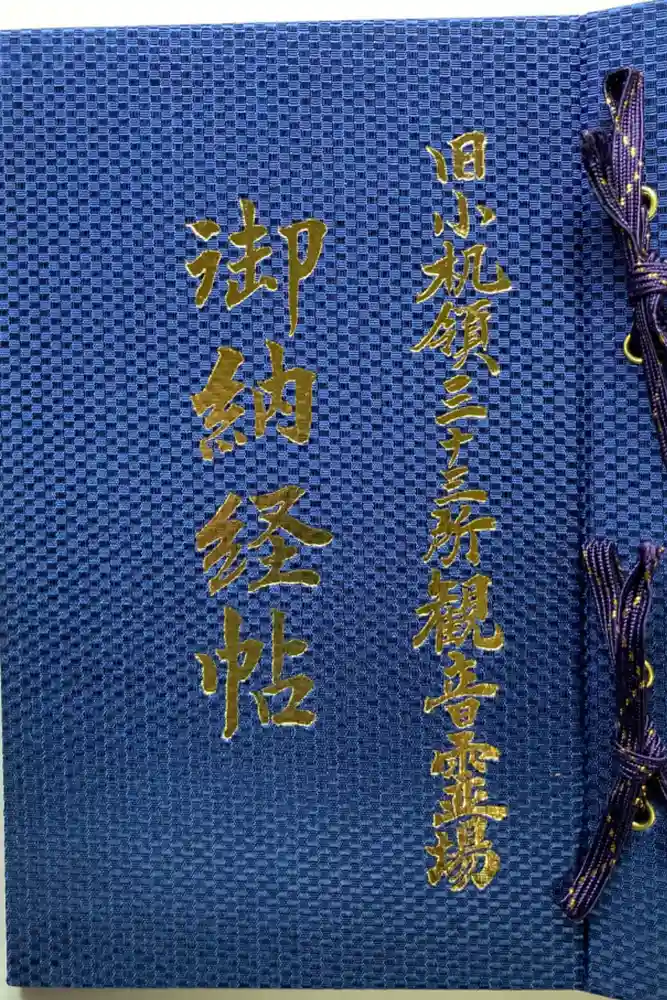 旧小机領三十三所観音霊場
御納経帖